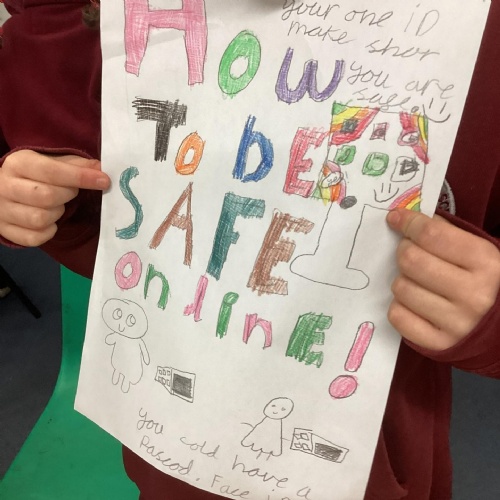 your one iD
make shor
you are
safe.
HOW
To bE
SAFE
online!
good
you cold have a
Pascod. Face i